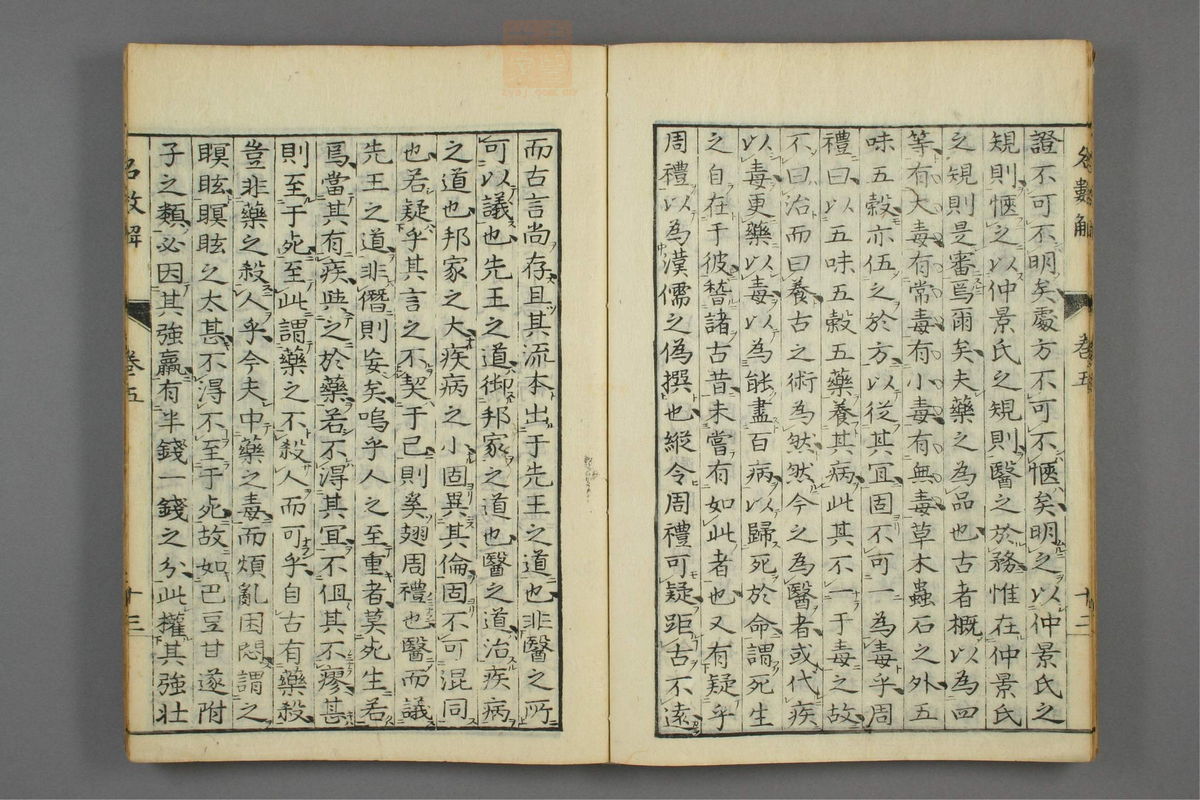 證不可不明矣處方不可不愜矣明之以仲景氏之
規則愜之以仲景氏之規則醫之於務惟在仲景氏
之規則是審焉爾矣夫藥之為品也古者概以為四
等有大毒有常毒有小毒有無毒草木蟲石之外五
味五穀亦伍之於方以從其宜固不可一為毒乎周
禮曰以五味五穀五藥養其病此其不一于毒之故
不曰治而曰養古之術為然然今之為醫者或代疾
以毒更藥以毒以為能盡百病以歸死於命謂死生
之自在于彼稽諸古昔未嘗有如此者也又有疑乎
周禮以為漢儒之偽撰也縱令周禮可疑距古不遠
而古言尚存且其流本出于先王之道也非醫之所
可以議也先王之道御邦家之道也醫之道治疾病
之道也邦家之大疾病之小固異其倫固不可混同
也若疑乎其言之不契于已則矣翅周禮也醫而議
先王之道非僭則妄矣嗚乎人之至重者莫死生若
焉當其有疾與之於藥若不得其宜不但其不瘳甚
則至于死至此謂藥之不殺人而可乎自古有藥殺
豈非藥之殺人乎今夫中藥之毒而煩亂困悶謂之
瞑眩瞑眩之太甚不得不至于死故如巴豆甘遂附
子之類必因其強羸有半錢一錢之分此權其強壯
卷五
十三